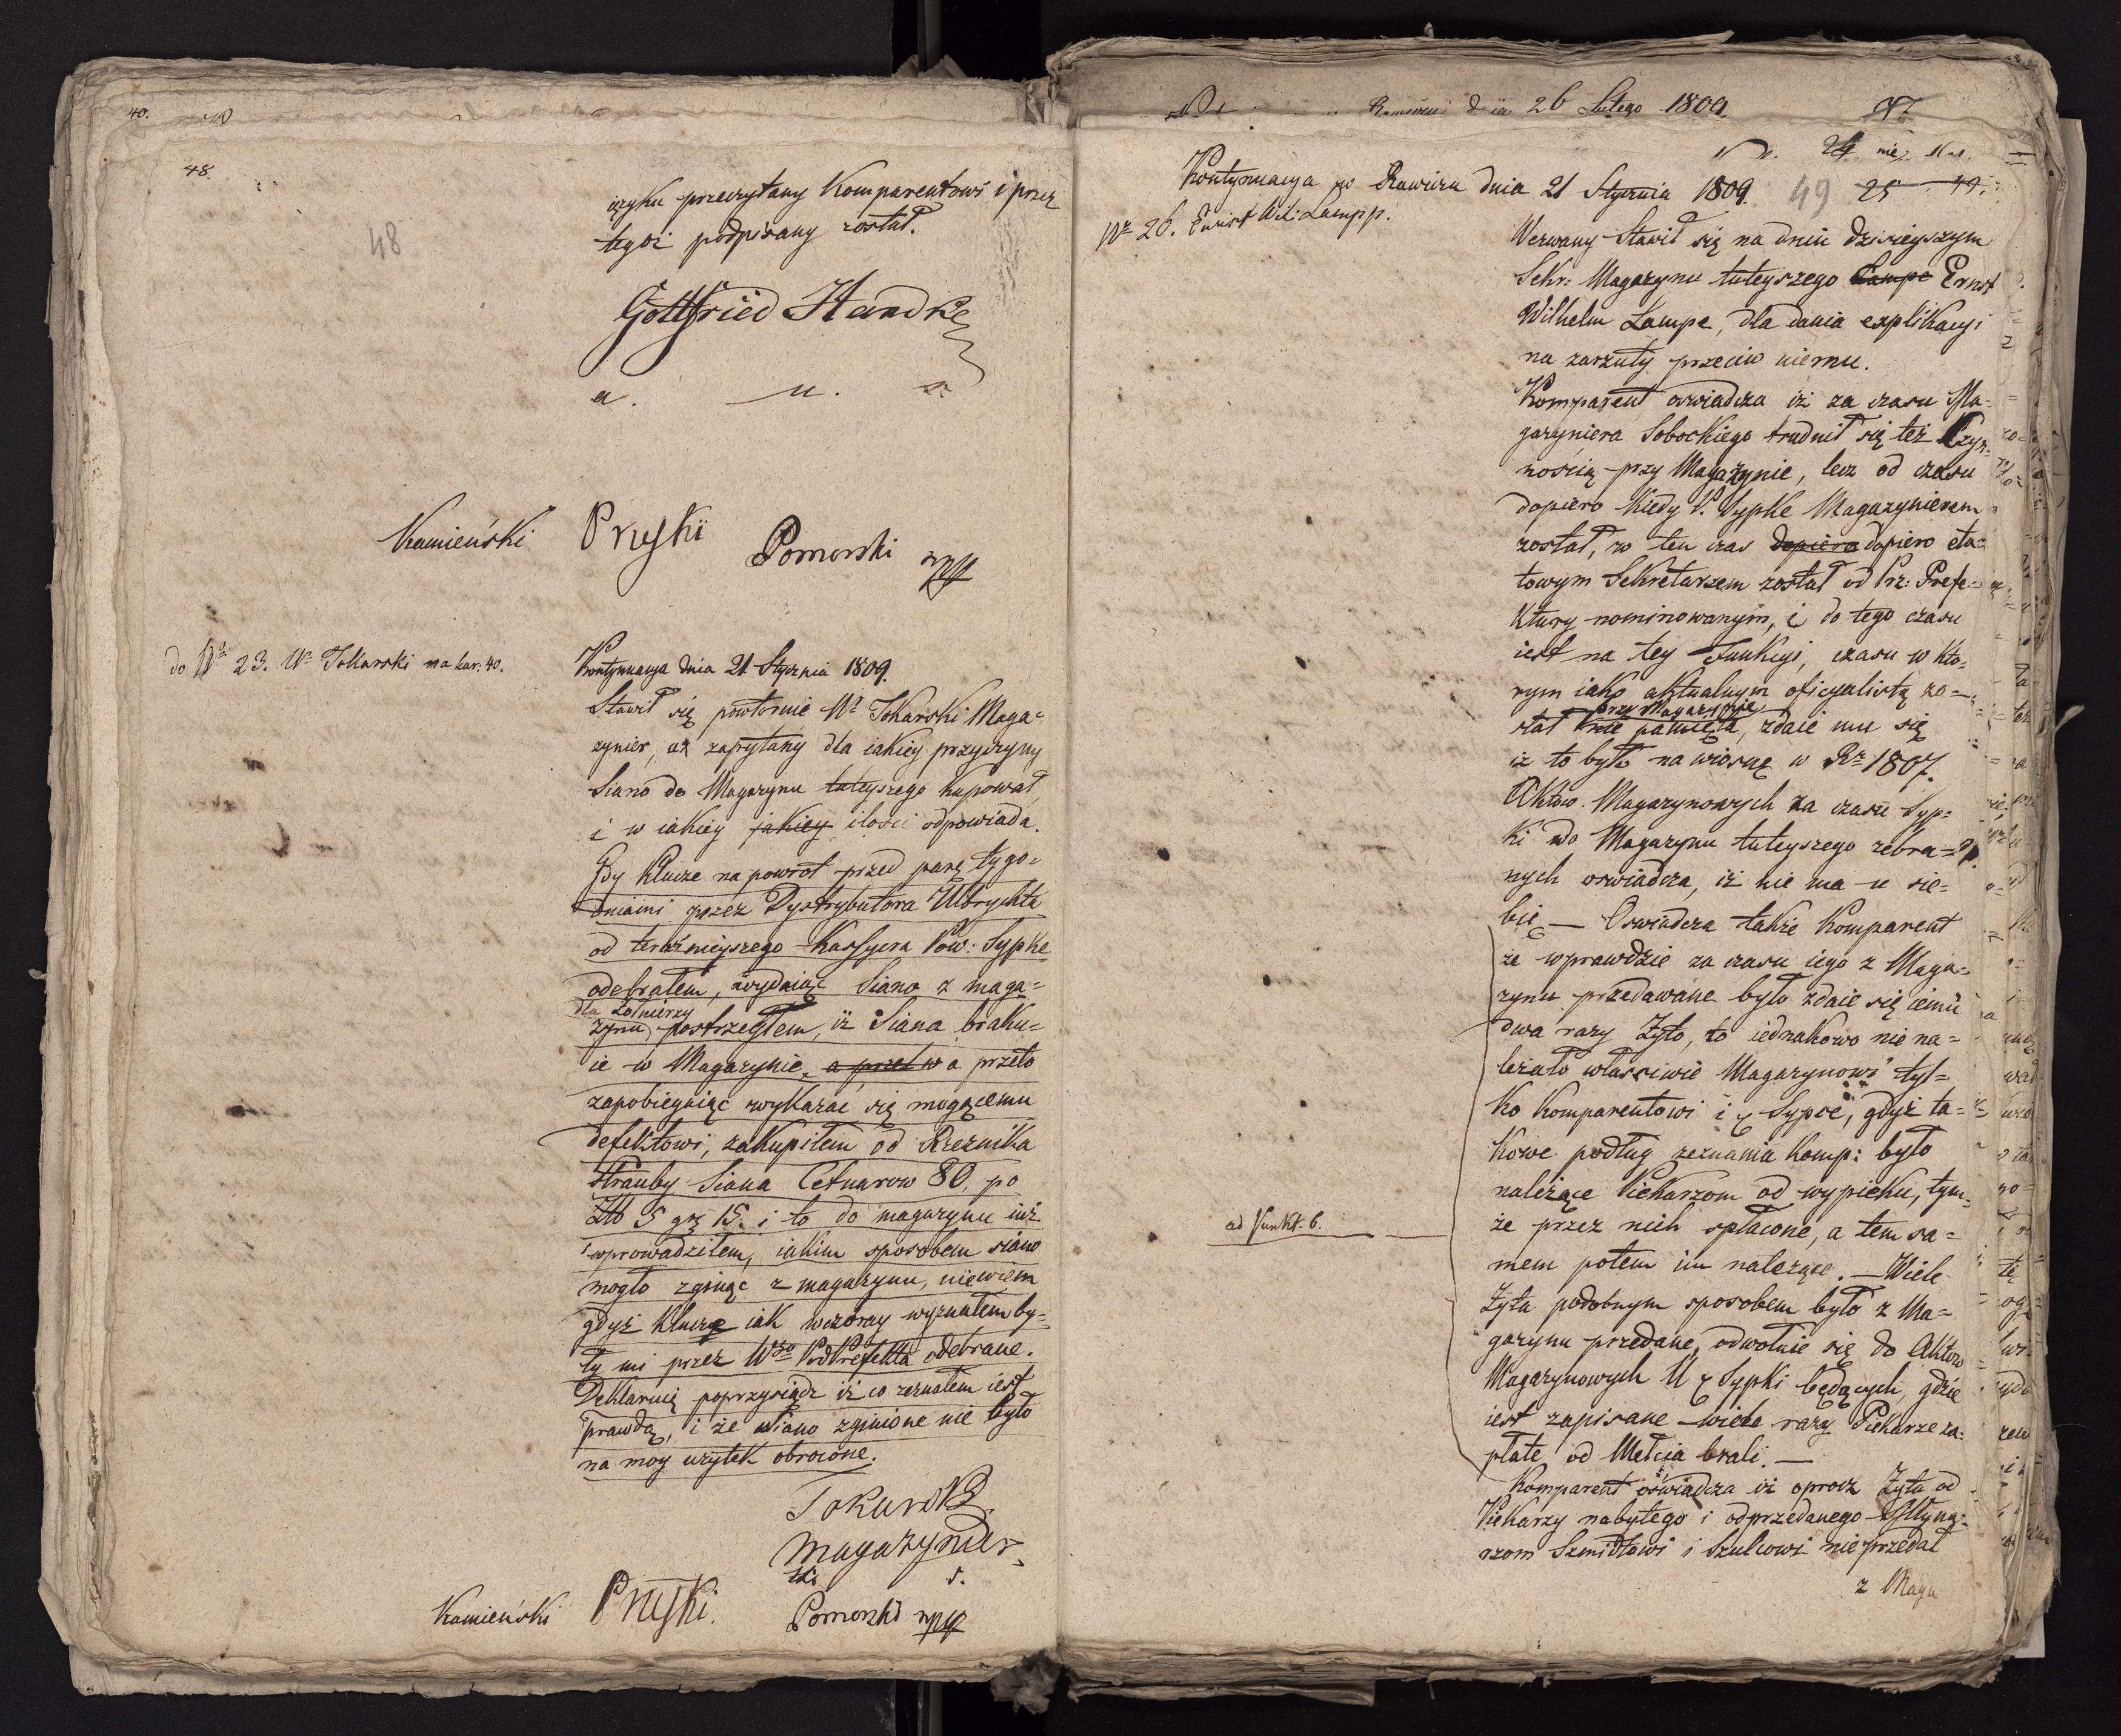 40.
48
48
ięzyku przeczytany Komparentowi i przez
tegoż podpisany został.
Gottfried Handke
a. u. s.
Kamieński Pruski Pomorski mpp
do Nr 23. Wr Tokarski na kar: 40.
Kontynuacya dnia 21 Stycznia 1809.
Stawił się powtornie Wr Tokarski Maga=
zynier, a zapytany dla iakiey przyczyny
Siano do Magazynu tuteyszego kupował,
i w iakiey jakiey ilosci odpowiada.
Gdy Klucze na powrot przed parą tygo=
dniami przez Dystrybutora Ulbrychta
od teraźnieyszego Kassyera Pow: Sypke
odebrałem, wydaiąc Siano z maga=
dla żołnierzy
zynu postrzegłem, iż Siana braku=
ie w Magazynie, a przet w a przeto
zapobiegaiąc wykazać się mogącemu
defektowi, zakupiłem od Rzeznika
Strauby Siana Cetnarow 80, po
Złł 5 gr 15. i to do magazynu iuż
wprowadziłem, iakim sposobem siano
mogło zginąc z magazynu, niewiem
gdyż klucze iak wczoray wyznałem by=
ły mi przez Wgo PodPrefekta odebrane.
Deklaruię poprzysiądz iż co zeznałem iest
prawdą, i że Siano zginione nie było
na moy użytek obrocone.
Tokarski
Magazynier
Kamieński Pruski. Pomorski mpp
Rawiczu dnia 26 Lutego 1809.
Kontynuacya w Rawiczu dnia 21 Stycznia 1809. 49 25
Nr 26. Ernst Wil: Lampp.
Wezwany Stawił się na dniu dzisieyszym
Sekr: Magazynu tuteyszego Lampe Ernst
Wilhelm Lampe, dla dania explikacyi
na zarzuty przeciw niemu.
Komparent oswiadcza iż za czasu Ma=
gazyniera Sobockiego trudnił się też Czyn=
nością przy Magazynie, lecz od czasu
dopiero kiedy P. Sypke Magazynierem
został, w ten czas dopiero dopiero eta=
towym Sekretarzem został od Prz: Prefe=
ktury nominowanym, i do tego czasu
iest na tey Funkcyi, czasu w kto=
rym iako aktualnym oficyalistą zo=
przy Magazynie
stał nie pamięta, zdaie mu się
iż to było na wiosnę w Rr 1807.
Aktow Magazynowych za czasu Syp=
ki do Magazynu tuteyszego zebra=
nych oswiadcza, iż nie ma u sie=
bie — Oswiadcza także Komparent
że wprawdzie za czasu iego z Maga=
zynu przedawane było zdaie się iemu
dwa razy Żyto, to iednakowo nie na=
leżało własciwie Magazynowi tyl=
ko Komparentowi i Sypce, gdyż ta=
kowe podług zeznania Komp: było
należące Piekarzom od wypieku, tym=
ad Punkt. 6.
że przez nich spłacone, a tem sa=
mem potem im należące. — Wiele
Żyta podobnym sposobem było z Ma=
gazynu przedane, odwołuie się do Aktow
Magazynowych U Sypki będących, gdzie
iest zapisane wiele razy Piekarze za=
płate od Melcia brali. —
Komparent oświadcza iż oprocz Żyta od
Piekarzy nabytego i odprzedanego Młyna=
rzom Szmidtowi i Szulcowi nie przedał
z Maga